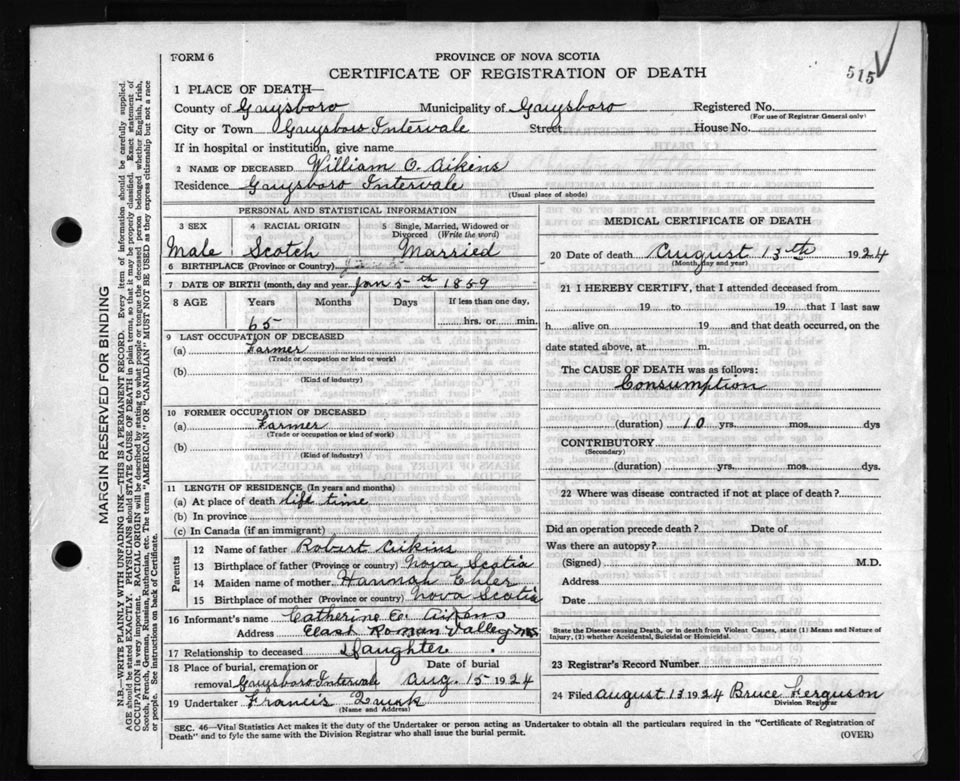 FORM 6
PROVINCE OF NOVA SCOTIA
CERTIFICATE OF REGISTRATION OF DEATH
515
1 PLACE OF DEATH—
County of Guysboro Municipality of Guysboro Registered No.
(For use of Registrar General only)
City or Town Guysboro Intervale Street House No.
If in hospital or institution, give name
2 NAME OF DECEASED William O. Aikens
Residence Guysboro Intervale
(Usual place of abode)
PERSONAL AND STATISTICAL INFORMATION
3 SEX 4 RACIAL ORIGIN 5 Single, Married, Widowed or Divorced (Write the word)
Male Scotch Married
6 BIRTHPLACE (Province or Country)
7 DATE OF BIRTH (month, day and year) Jan 5th 1859
8 AGE Years Months Days If less than one day,
65 hrs. or min.
9 LAST OCCUPATION OF DECEASED
(a) Farmer
(Trade or occupation or kind of work)
(b)
(Kind of industry)
10 FORMER OCCUPATION OF DECEASED
(a) Farmer
(Trade or occupation or kind of work)
(b)
(Kind of industry)
11 LENGTH OF RESIDENCE (In years and months)
(a) At place of death life time
(b) In province
(c) In Canada (if an immigrant)
Parents
12 Name of father Robert Aikins
13 Birthplace of father (Province or country) Nova Scotia
14 Maiden name of mother Hannah Ehler
15 Birthplace of mother (Province or country) Nova Scotia
16 Informant's name Catherine E. Aikens
Address East Roman Valley N.S.
17 Relationship to deceased Daughter
18 Place of burial, cremation or removal Guysboro Intervale Date of burial Aug. 15 1924
19 Undertaker Francis
(Name and Address)
MEDICAL CERTIFICATE OF DEATH
20 Date of death August 13th 1924
(Month, day and year)
21 I HEREBY CERTIFY, that I attended deceased from
19 to 19 that I last saw
h alive on 19 and that death occurred, on the
date stated above, at m.
The CAUSE OF DEATH was as follows:
Consumption
(duration) 10 yrs. mos. dys
CONTRIBUTORY
(Secondary)
(duration) yrs. mos. dys.
22 Where was disease contracted if not at place of death?
Did an operation precede death? Date of
Was there an autopsy?
(Signed) M.D.
Address
Date
State the Disease causing Death, or in death from Violent Causes, state (1) Means and Nature of
Injury, (2) whether Accidental, Suicidal or Homicidal.
23 Registrar's Record Number
24 Filed August 13 1924 Bruce Ferguson
Division Registrar
SEC. 46—Vital Statistics Act makes it the duty of the Undertaker or person acting as Undertaker to obtain all the particulars required in the "Certificate of Registration of
Death" and to fyle the same with the Division Registrar who shall issue the burial permit.
(OVER)
MARGIN RESERVED FOR BINDING
N.B.—WRITE PLAINLY WITH UNFADING INK—THIS IS A PERMANENT RECORD. Every item of information should be carefully supplied.
AGE should be stated EXACTLY. PHYSICIANS should STATE CAUSE OF DEATH in plain terms, so that it may be properly classified. Exact statement of
OCCUPATION is very important. RACIAL ORIGIN will be described by stating to what people or tongue the deceased person belonged whether English, Irish,
Scotch, French, German, Russian, Ruthenian, etc. The terms "AMERICAN" OR "CANADIAN" MUST NOT BE USED as they express citizenship but not a race
or people. See instructions on back of Certificate.